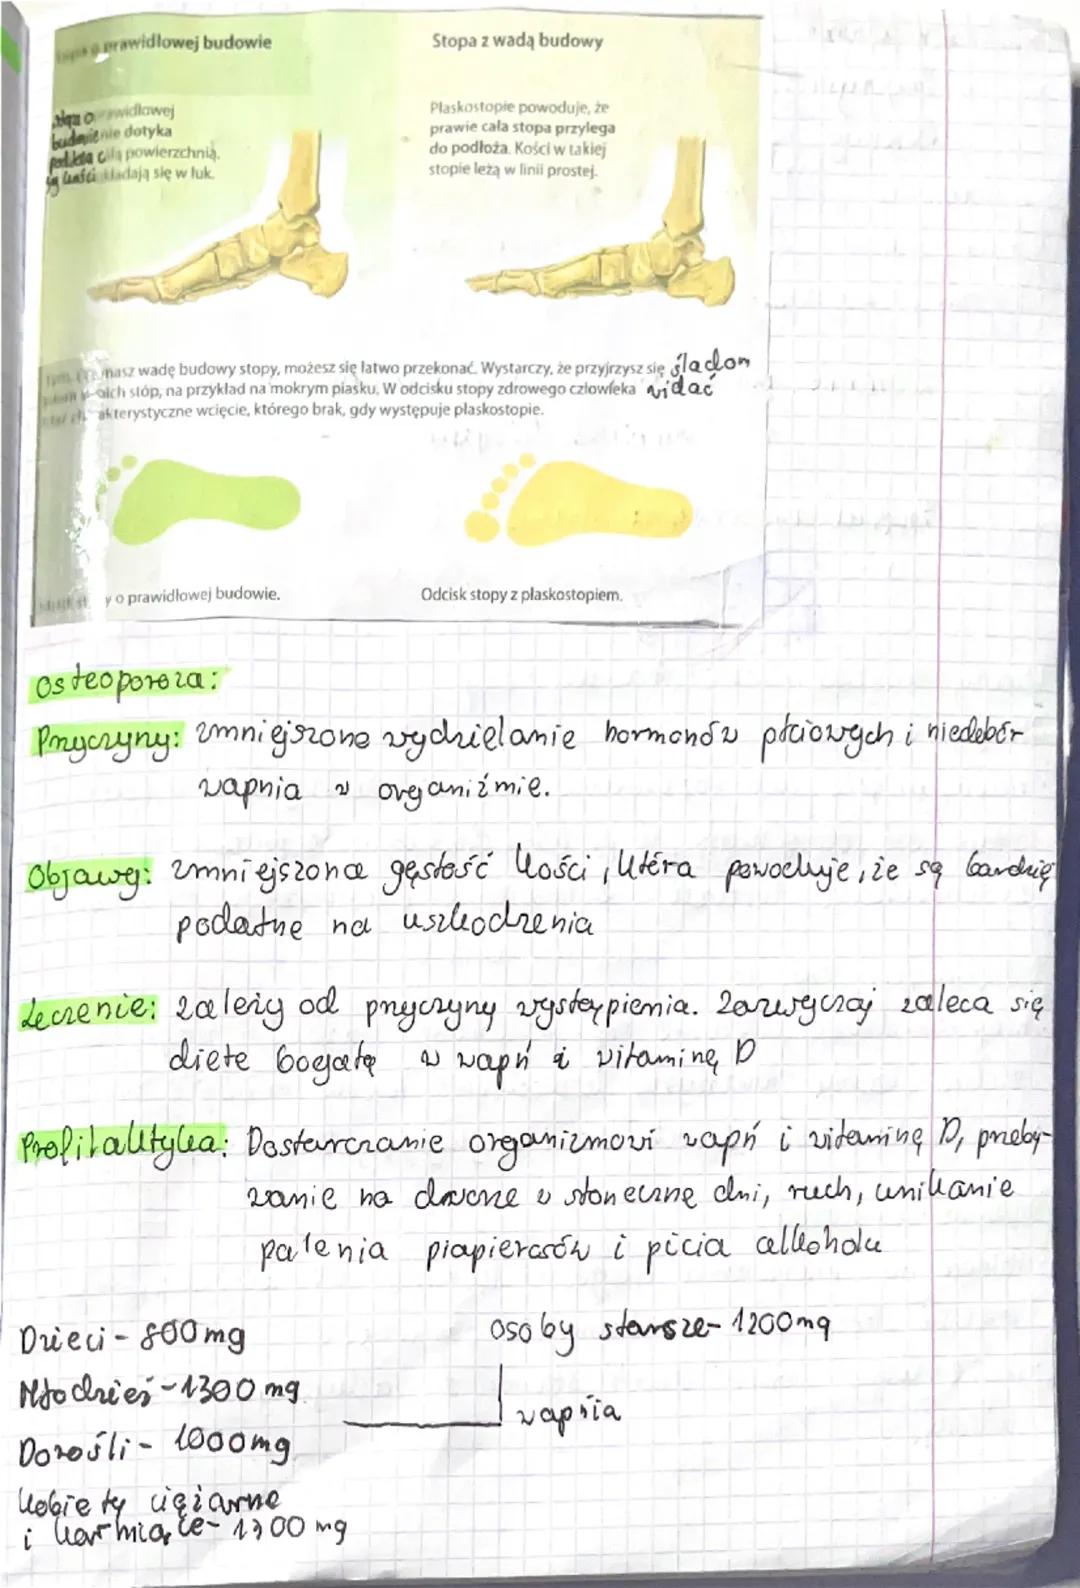 prawidłowej budowie
Stopa z wadą budowy
prawidłowej
budowie nie dotyka
podłoża całą powierzchnią.
Jej kości układają się w łuk.
Płaskostopie powoduje, że
prawie cała stopa przylega
do podłoża. Kości w takiej
stopie leżą w linii prostej.
masz wadę budowy stopy, możesz się łatwo przekonać. Wystarczy, że przyjrzysz się śladom
stóp, na przykład na mokrym piasku. W odcisku stopy zdrowego człowieka widać
charakterystyczne wcięcie, którego brak, gdy występuje płaskostopie.
y o prawidłowej budowie.
Odcisk stopy z płaskostopiem.
Osteoporoza:
Przyczyny: zmniejszone wydzielanie hormonów płciowych i niedobór
wapnia w organiźmie.
Objawy: zmniejszona gęstość kości, która powoduje, że są bardziej
podatne na uszkodzenia
Leczenie: zależy od przyczyny wystąpienia. Zazwyczaj zaleca się
diete bogatą w wapń i witaminę D
Profilaktyka: Dostarczanie organizmowi wapń i witaminę D, przeby-
wanie na dworze w słoneczne dni, ruch, unikanie
palenia piapierosów i picia alkoholu
Dzieci - 800mg
osoby starsze - 1200mg
Młodzież - 1300 mg
wapnia
Dorośli - 1000mg
Kobiety ciężarne
i karmiące - 1300 mg